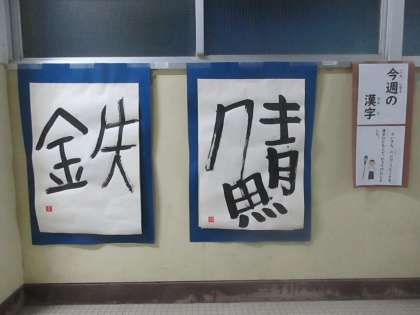 鉄
鯖
今週の
漢字